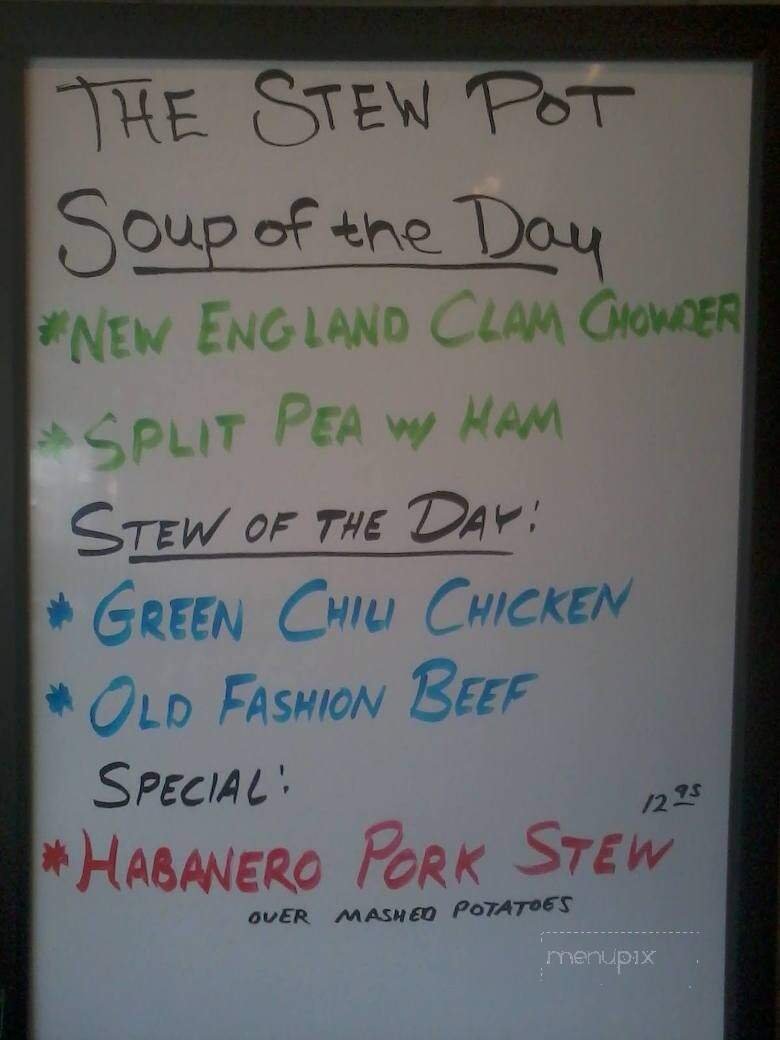 THE STEW POT
Soup of the Day
*NEW ENGLAND CLAM CHOWDER
*SPLIT PEA w/ HAM
STEW OF THE DAY:
* GREEN CHILI CHICKEN
* OLD FASHION BEEF
SPECIAL:
12 95
*HABANERO PORK STEW
OVER MASHED POTATOES
menupix